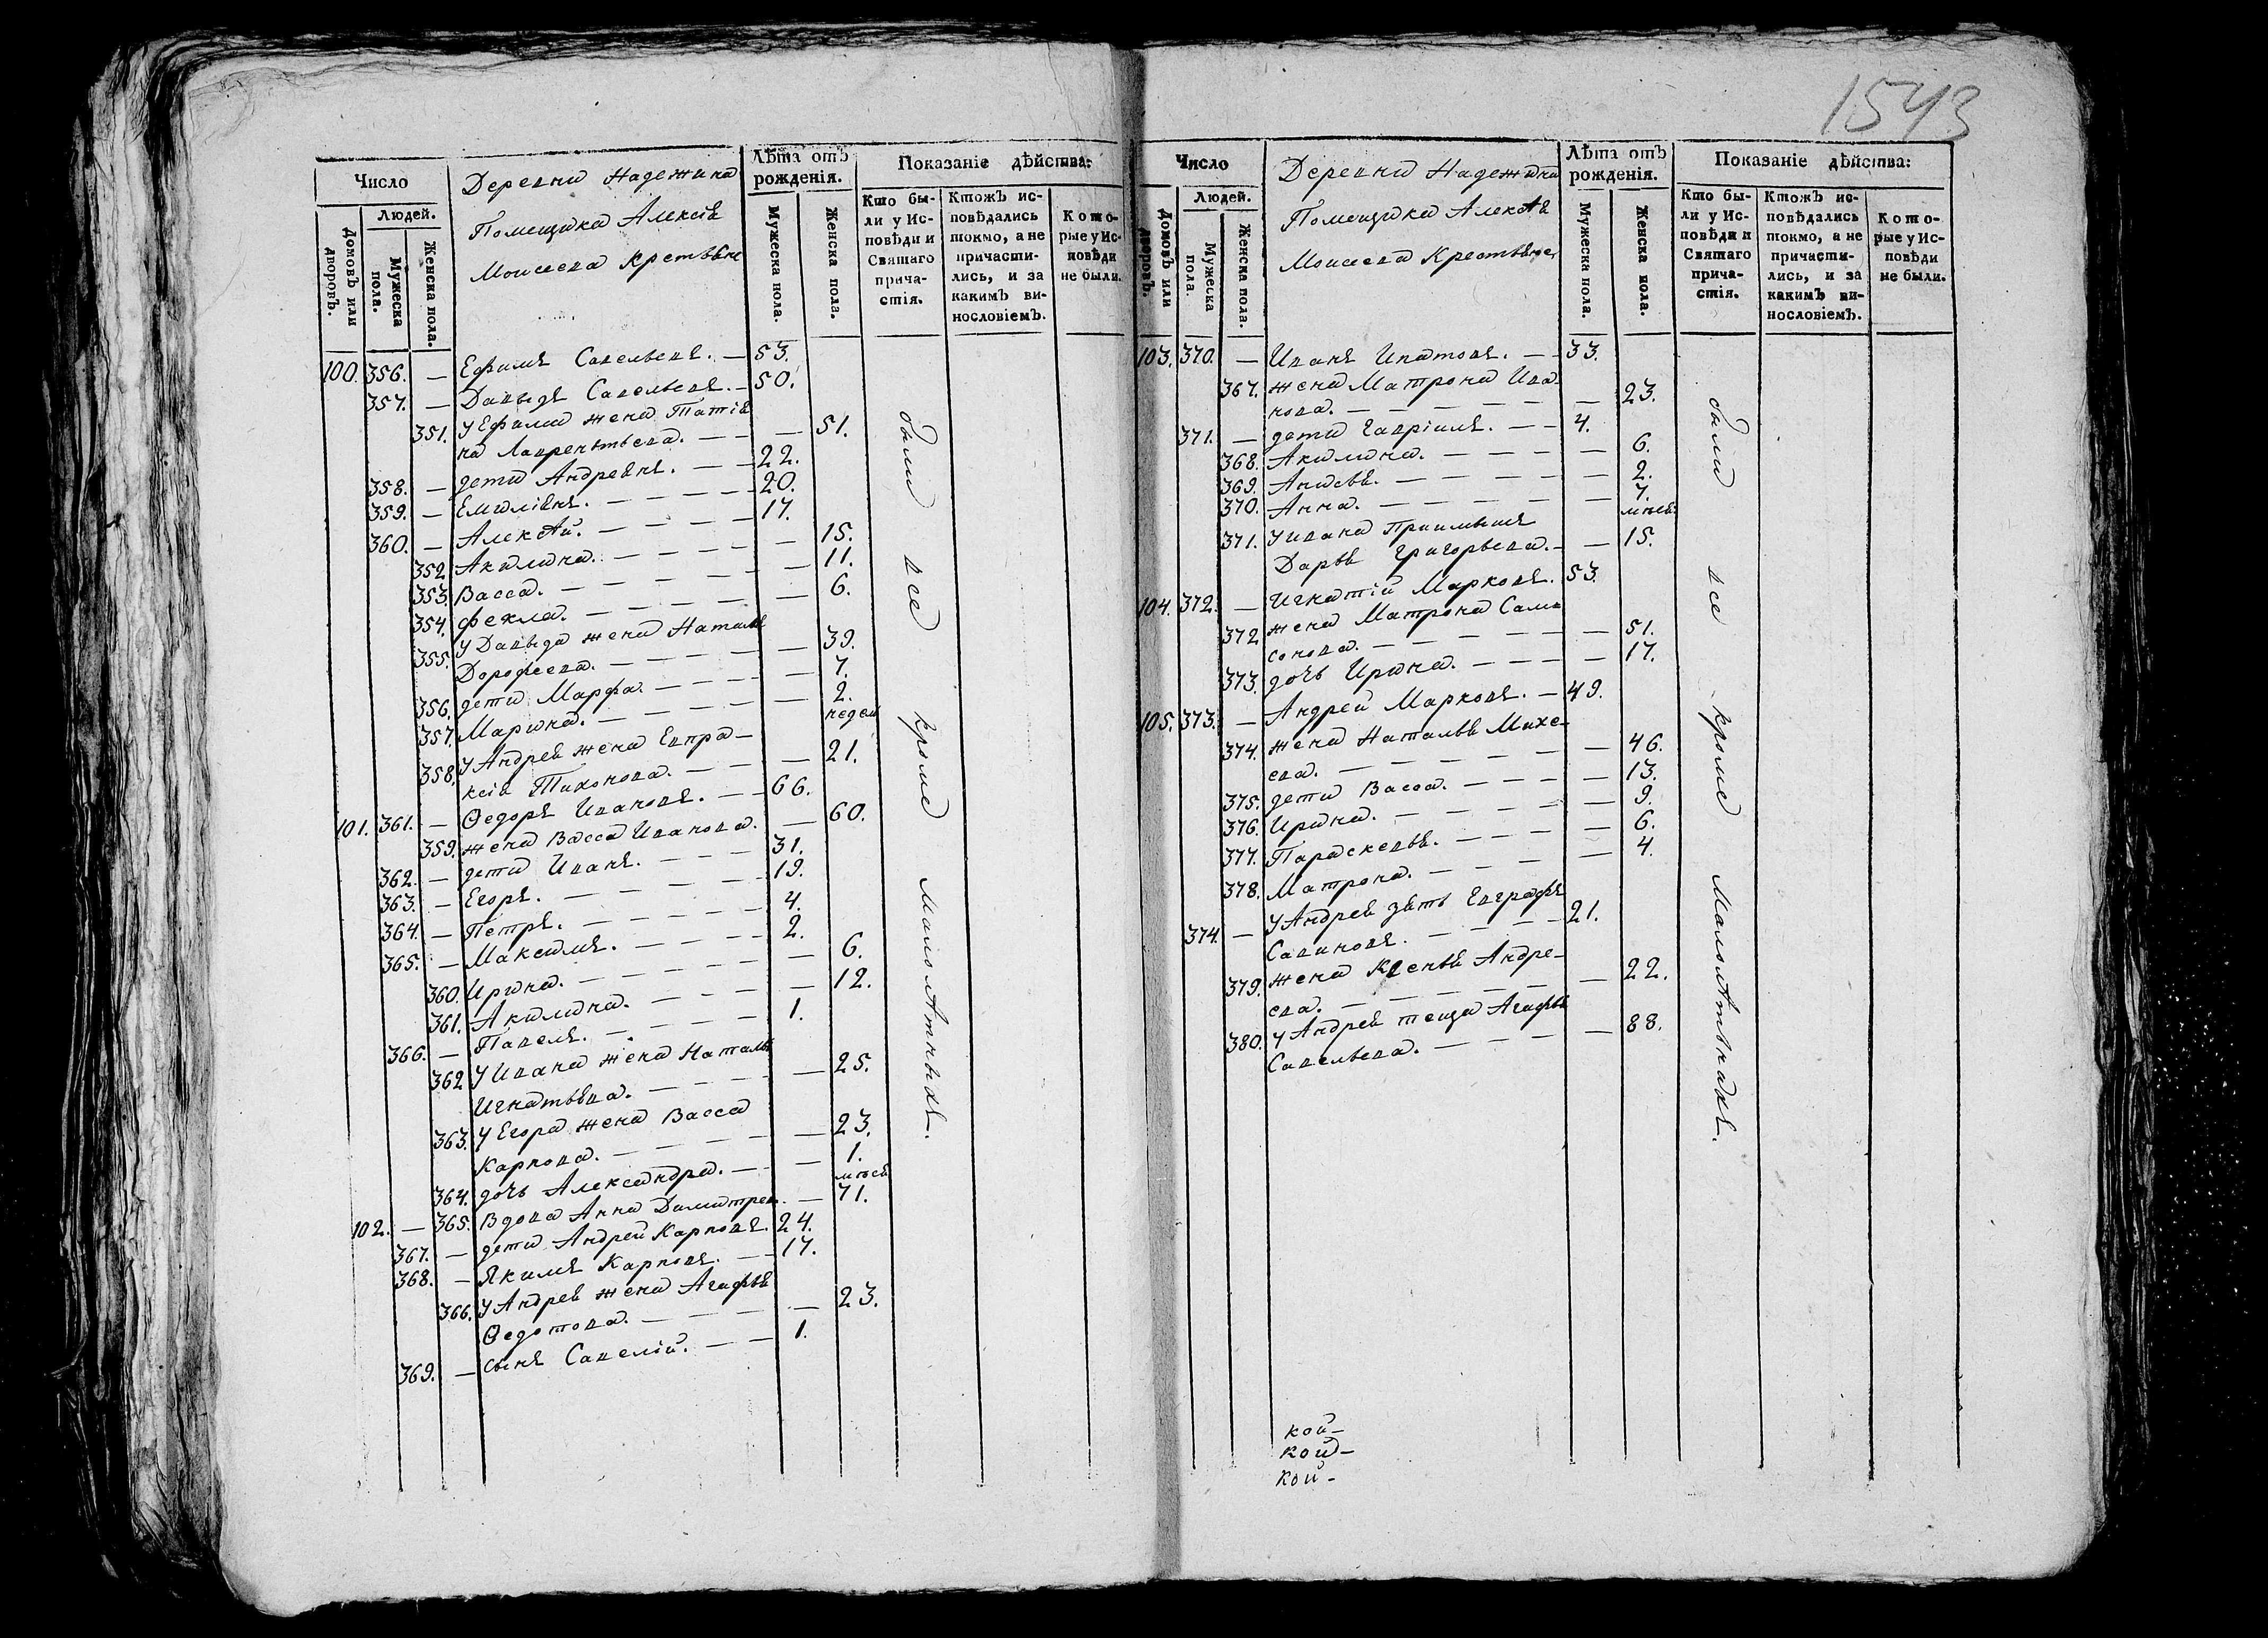 1543
Число
Людей.
Домовъ или дворовъ.
Мужеска пола.
Женска пола.
Деревни Надежина
Помещика Алексѣя
Моисеева Крестьяне
Лѣта отъ рожденія.
Мужеска пола.
Женска пола.
Показаніе дѣйства:
Кто бы-
ли у Ис-
повѣди и
Святаго
прича-
стія.
Ктожъ ис-
повѣдались
токмо, а не
причасти-
лись, и за
какимъ ви-
нословіемъ.
Кото-
рые у Ис-
повѣди
не были.
100. 356. — Ефимъ Савельевъ. — 53.
357. — Давыдъ Савельевъ. — 50.
351. У Ефима жена Татiя
на Лаврентьева. — — — 51.
358. — дети Андреянъ. — — 22.
359. — Емилiянъ. — — — 20.
360. — Алексѣй. — — — 17.
352. Акилина. — — — — 15.
353. Васса. — — — — 11.
354. Фекла. — — — — 6.
355. У Давыда жена Наталья
Дорофеева. — — — — 39.
356. дети Марфа. — — — — 7.
357. Марина. — — — — 2. недел
358. У Андрея жена Евпра—
ксiя Тихонова. — — — 21.
101. 361. — Ѳедоръ Ивановъ. — — 66.
359. жена Васса Иванова. — 60.
362. — дети Иванъ. — — — 31.
363. — Егоръ. — — — — 19.
364. — Петръ. — — — — 4.
365. — Максимъ. — — — 2.
360. Ирина. — — — — 6.
361. Акилина. — — — — 12.
366. — Павелъ. — — — — 1.
362. У Ивана жена Наталья
Игнатьева. — — — — 25.
363. У Егора жена Васса
Карпова. — — — — 23.
364. дочь Александра. — — 1. месяц
102. — 365. Вдова Анна Димитрев. — 71.
367. — дети Андрей Карповъ. 24.
368. — Якимъ Карповъ. — — 17.
366. У Андрея жена Агафья
Ѳедотова. — — — — 23.
369. — сынъ Савелiй. — — 1.
были все кроме малолѣтныхъ.
Число
Людей.
Домовъ или дворовъ.
Мужеска пола.
Женска пола.
Деревни Надежина
Помещика Алексѣя
Моисеева Крестьяне
Лѣта отъ рожденія.
Мужеска пола.
Женска пола.
Показаніе дѣйства:
Кто бы-
ли у Ис-
повѣди и
Святаго
прича-
стія.
Ктожъ ис-
повѣдались
токмо, а не
причасти-
лись, и за
какимъ ви-
нословіемъ.
Кото-
рые у Ис-
повѣди
не были.
103. 370. — Иванъ Ипатовъ. — — 33.
367. жена Матрона Ива-
нова. — — — — — 23.
371. — дети Гаврiилъ. — — 4.
368. Акилина. — — — — 6.
369. Анисья. — — — — 2.
370. Анна. — — — — 7. месяц
371. У Ивана Приимышъ
Дарья Григорьева. — — 15.
104. 372. — Игнатiй Марковъ. 53.
372. жена Матрона Сам-
сонова. — — — — 51.
373. дочь Ирина. — — — — 17.
105. 373. — Андрей Марковъ. — 49.
374. жена Наталья Михе-
ева. — — — — 46.
375. дети Васса. — — — — 13.
376. Ирина. — — — — 9.
377. Параскевья. — — — — 6.
378. Матрона. — — — — 4.
374. — У Андрея зять Евграфъ
Савиновъ. — — — 21.
379. жена Ксенья Андре-
ева. — — — — 22.
380. У Андрея теща Агафья
Савельева. — — — — 88.
были все кроме малолѣтныхъ.
кой—
кой—
кой—